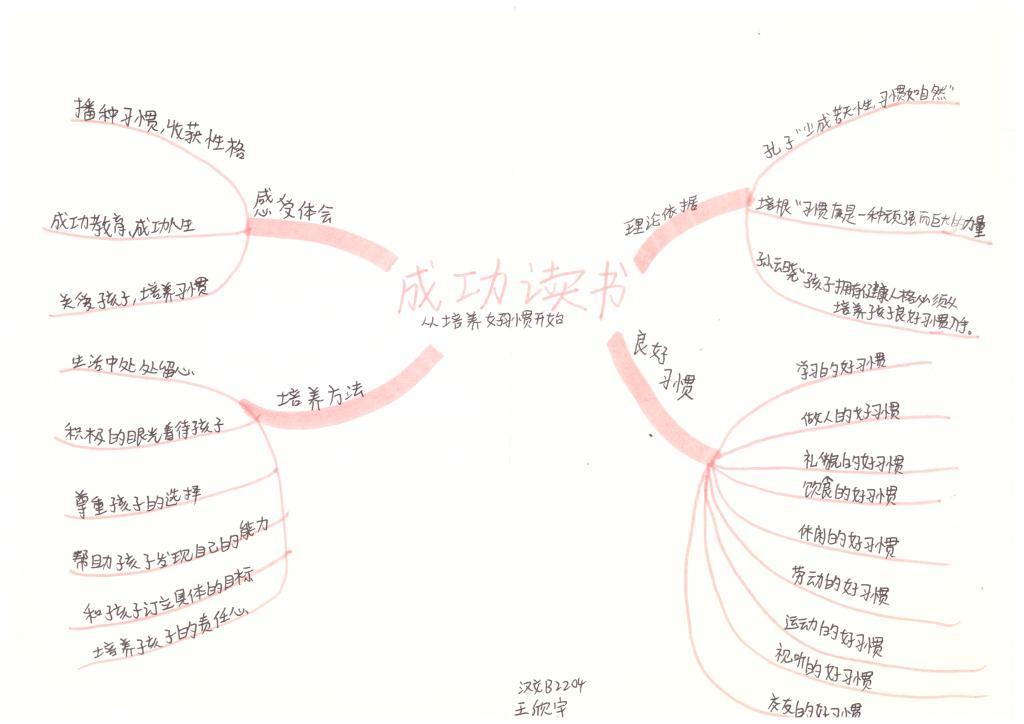 成功读书
从培养好习惯开始
理论依据
孔子“少成若天性,习惯如自然”
培根“习惯真是一种顽强而巨大的力量
孙云晓“孩子拥有健康人格必须从
培养孩子良好习惯入手。
良好
习惯
学习的好习惯
做人的好习惯
礼貌的好习惯
饮食的好习惯
休闲的好习惯
劳动的好习惯
运动的好习惯
视听的好习惯
交友的好习惯
培养方法
生活中处处留心
积极的眼光看待孩子
尊重孩子的选择
帮助孩子发现自己的能力
和孩子订立具体的目标
培养孩子的责任心
感受体会
播种习惯,收获性格
成功教育,成功人生
关爱孩子,培养习惯
汉文B2204
王欣宇